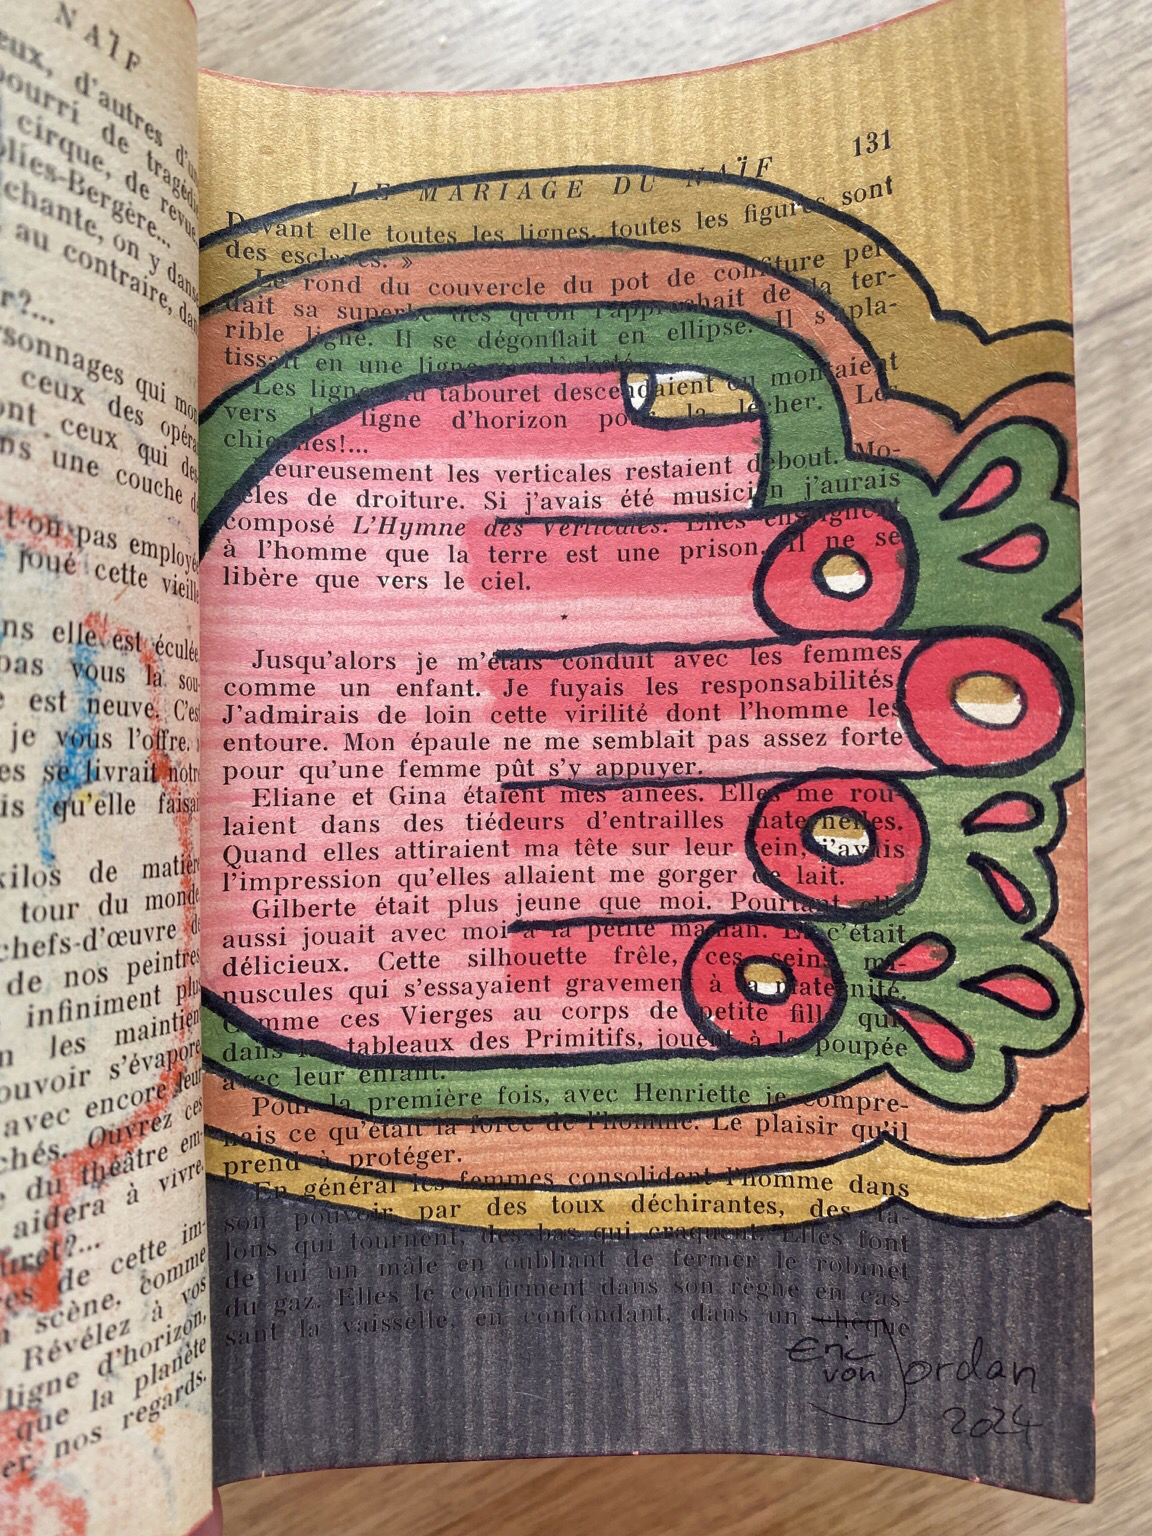 NAÏF
eux, d'autres d'un
pourri de tragéd
cirque, de revue,
olies-Bergère...
chante, on y danse
au contraire, dan
r?...
sonnages qui mon
ceux des opéra
ont ceux qui des
ns une couche d
t-on pas employé
joué cette vieill
ns elle est éculée
pas vous la sou-
e est neuve. C'est
je vous l'offre.
es se livrait notr
is qu'elle faisai
kilos de matièr
tour du monde
chefs-d'œuvre d
de nos peintres
infiniment plus
n les maintien
ouvoir s'évapore
avec encore leur
chés. Ouvrez ces
e du théâtre em-
aidera à vivre.
uret?...
res de cette im-
scène, comme
Révélez à vos
ligne d'horizon,
que la planète
er nos regards.
131
LE MARIAGE DU NAÏF
Devant elle toutes les lignes, toutes les figures sont
des esclaves. »
Le rond du couvercle du pot de confiture per-
dait sa superbe dès qu'on l'approchait de la ter-
rible ligne. Il se dégonflait en ellipse. Il s'apla-
tissait en une ligne
Les lignes du tabouret descendaient ou montaient
vers la ligne d'horizon pour la lécher. Les
chiennes!...
Heureusement les verticales restaient debout. Mo-
dèles de droiture. Si j'avais été musicien j'aurais
composé L'Hymne des verticales. Elles enseignent
à l'homme que la terre est une prison. Il ne se
libère que vers le ciel.
*
Jusqu'alors je m'étais conduit avec les femmes
comme un enfant. Je fuyais les responsabilités.
J'admirais de loin cette virilité dont l'homme les
entoure. Mon épaule ne me semblait pas assez forte
pour qu'une femme pût s'y appuyer.
Eliane et Gina étaient mes aînées. Elles me rou-
laient dans des tiédeurs d'entrailles maternelles.
Quand elles attiraient ma tête sur leur sein, j'avais
l'impression qu'elles allaient me gorger de lait.
Gilberte était plus jeune que moi. Pourtant elle
aussi jouait avec moi à la petite maman. Et c'était
délicieux. Cette silhouette frêle, ces seins mi-
nuscules qui s'essayaient gravement à la maternité.
Comme ces Vierges au corps de petite fille qui,
dans les tableaux des Primitifs, jouent à la poupée
avec leur enfant.
Pour la première fois, avec Henriette je compre-
nais ce qu'était la force de l'homme. Le plaisir qu'il
prend à protéger.
En général les femmes consolident l'homme dans
son pouvoir par des toux déchirantes, des ta-
lons qui tournent, des bas qui craquent. Elles font
de lui un mâle en oubliant de fermer le robinet
du gaz. Elles le confirment dans son règne en cas-
sant la vaisselle, en confondant, dans un chèque
Eric
von Jordan
2024